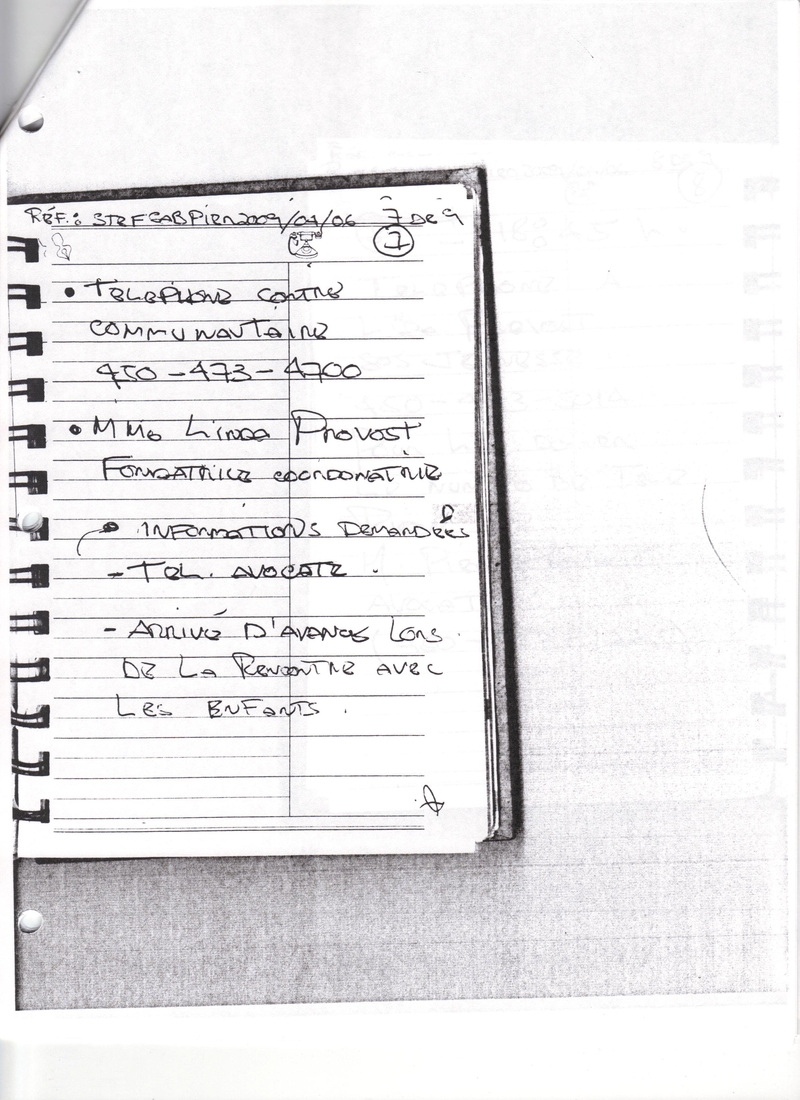 RÉF.: STEFGABPIER2009/04/06 7 DE 9
7
• TELEPHONE CENTRE
COMMUNAUTAIRE
450-473-4700
• MME LINDA PROVOST
FONDATRICE COORDONATRICE
INFORMATIONS DEMANDÉES
- TEL. AVOCATE.
- ARRIVÉ D'AVANCE LORS
DE LA RENCONTRE AVEC
LES ENFANTS.